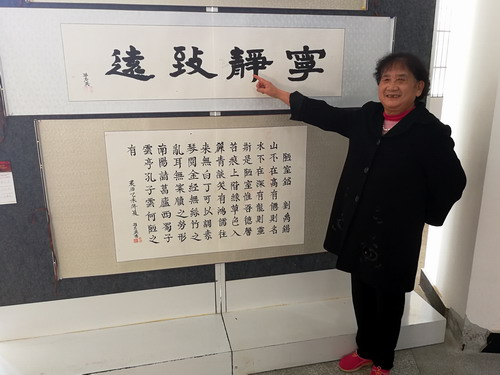 寧靜致遠
陋室銘 劉禹錫
山不在高有僊則名
水不在深有龍則靈
斯是陋室惟吾德馨
苔痕上階綠草色入
簾青談笑有鴻儒往
來無白丁可以調素
琴閱金經無絲竹之
亂耳無案牘之勞形
南陽諸葛廬西蜀子
雲亭孔子雲何陋之
有